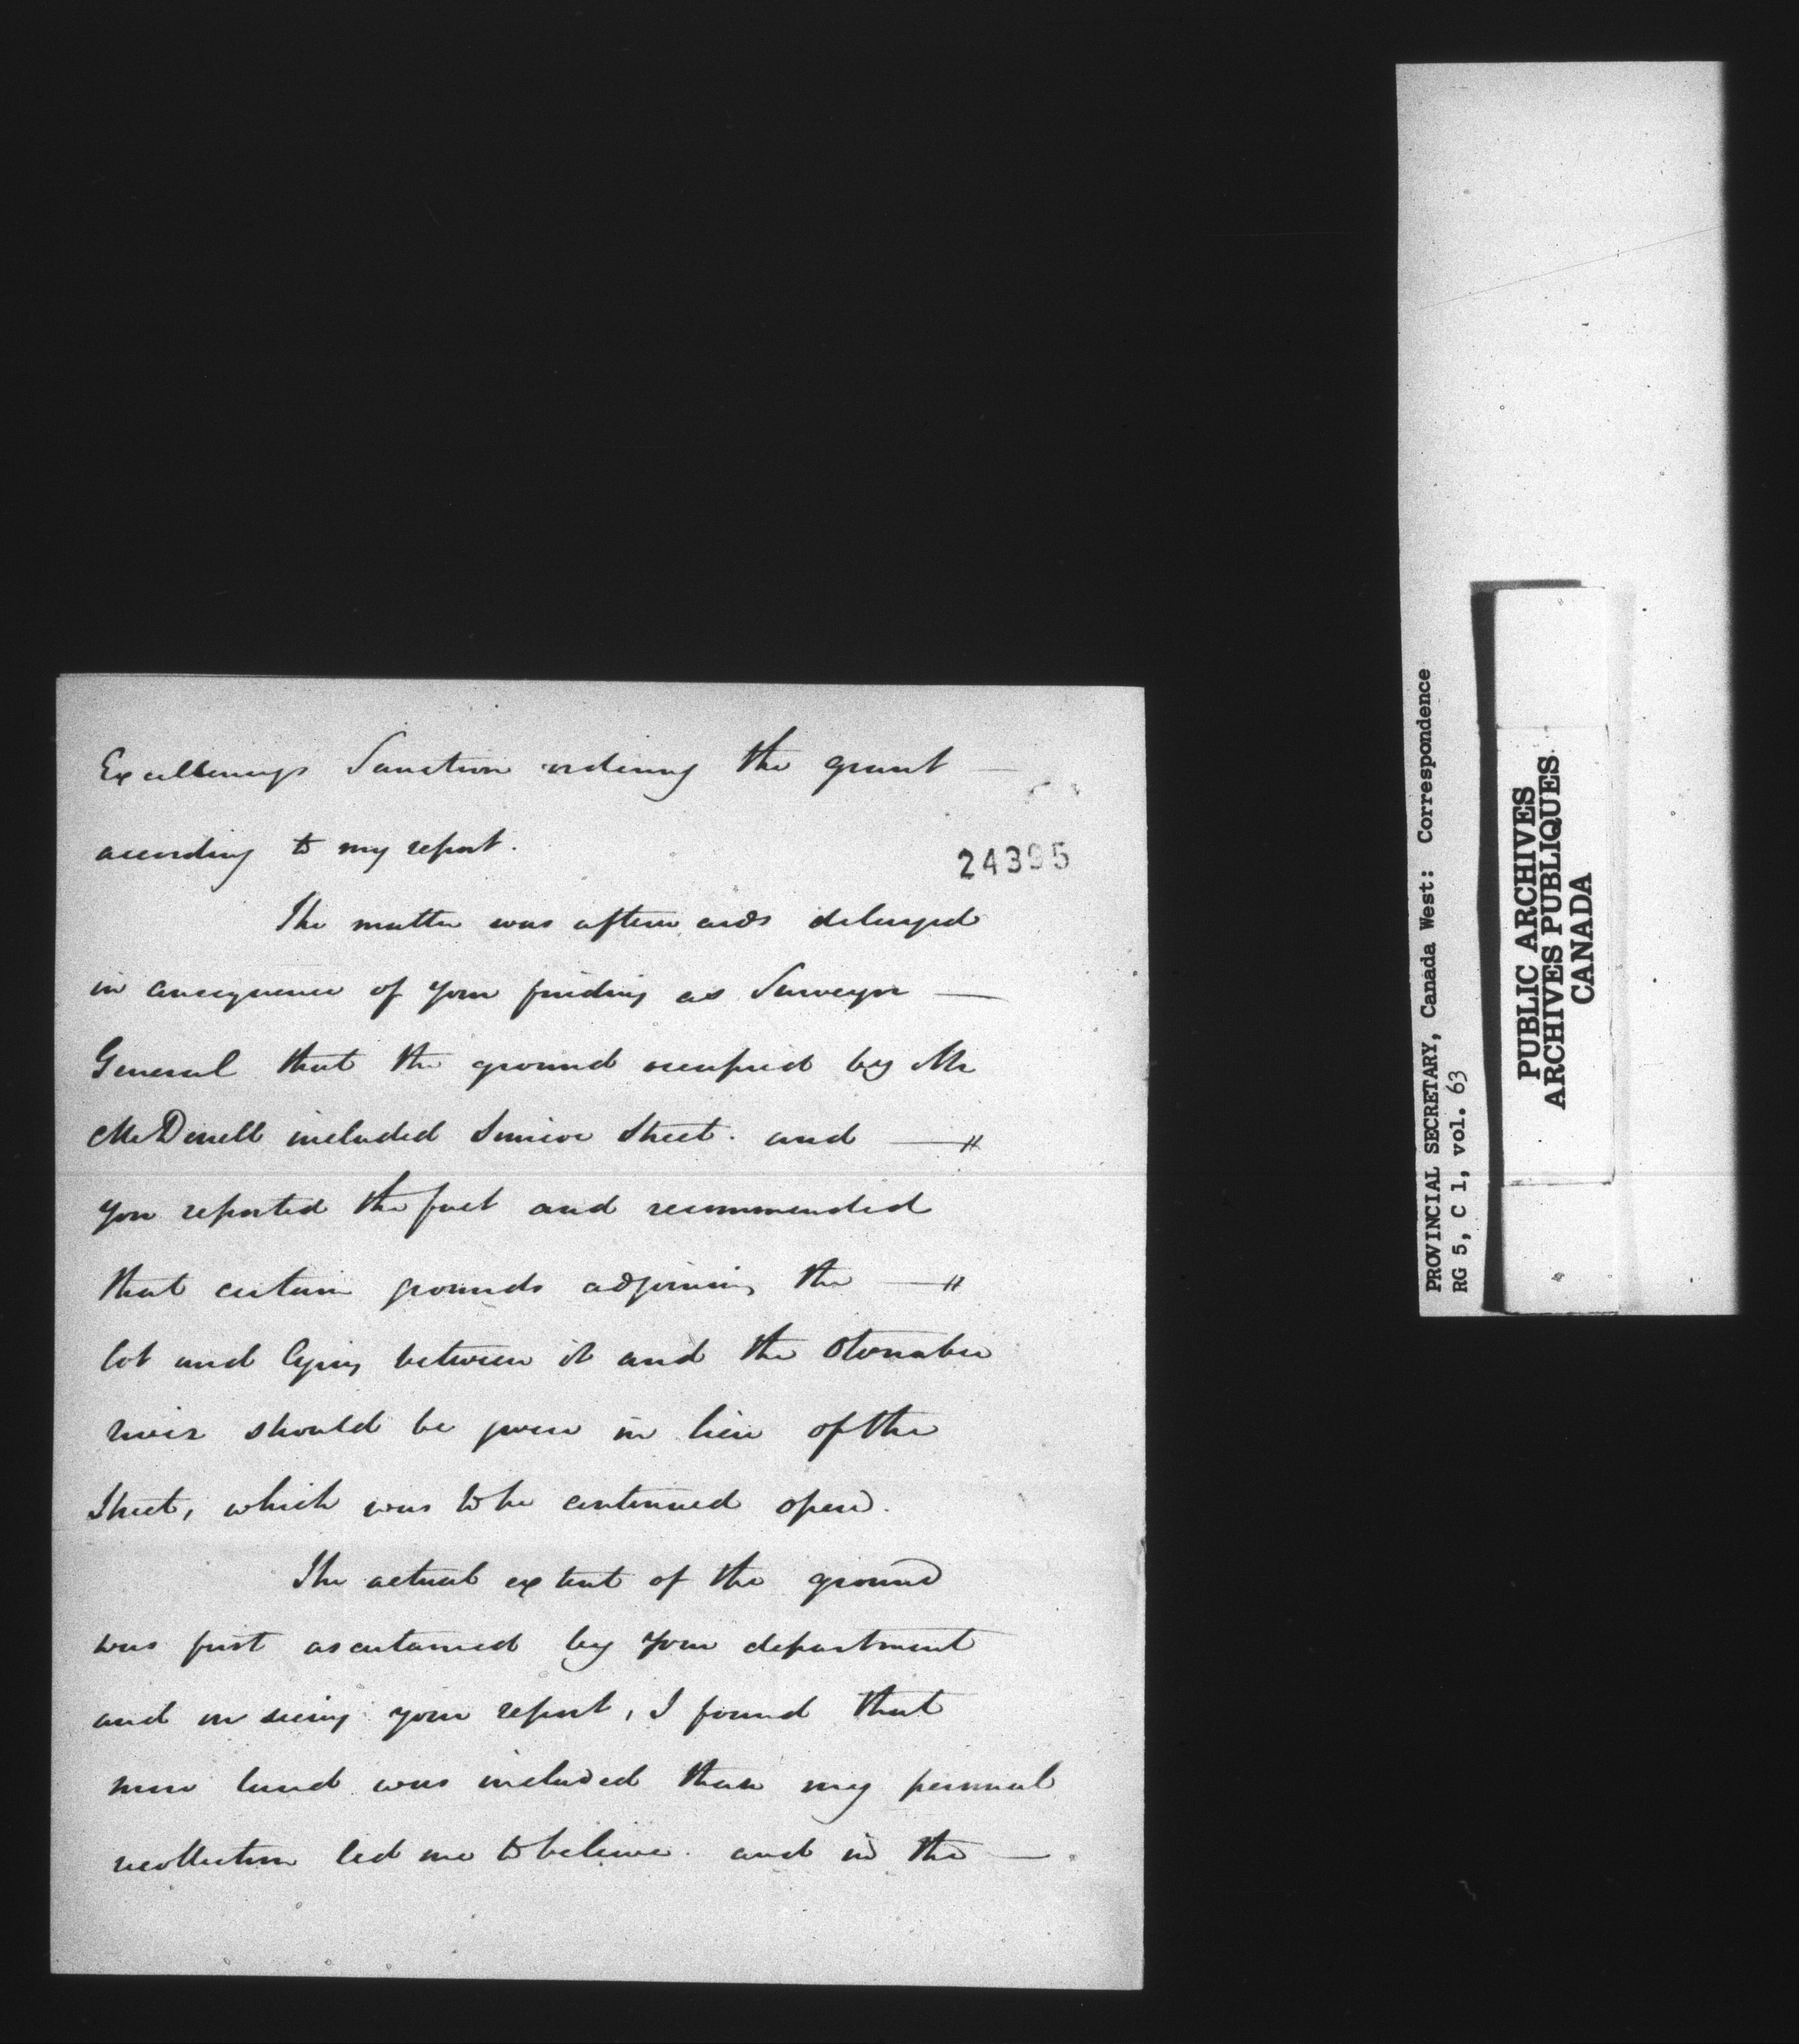 Excellencys Sanction ordering the grant —
according to my report.
24395
The matter was afterwards delayed
in consequence of your finding as Surveyor —
General that the ground occupied by Mr
McDonell included Simcoe Street. and —"
you reported the fact and recommended
that certain grounds adjoining the —"
lot and lying between it and the Otonabee
river should be given in lieu of the
Street, which was to be continued open.
The actual extent of the ground
was first ascertained by your department
and on seeing your report, I found that
more land was included than my personal
recollection led me to believe. and in the —
PROVINCIAL SECRETARY, Canada West: Correspondence
RG 5, C 1, vol. 63
PUBLIC ARCHIVES
ARCHIVES PUBLIQUES
CANADA